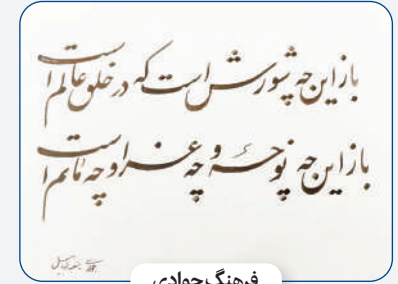 باز این چه شورش است که در خلق عالم است
باز این چه نوحه و چه عزا و چه ماتم است
فرهنگ جوادی